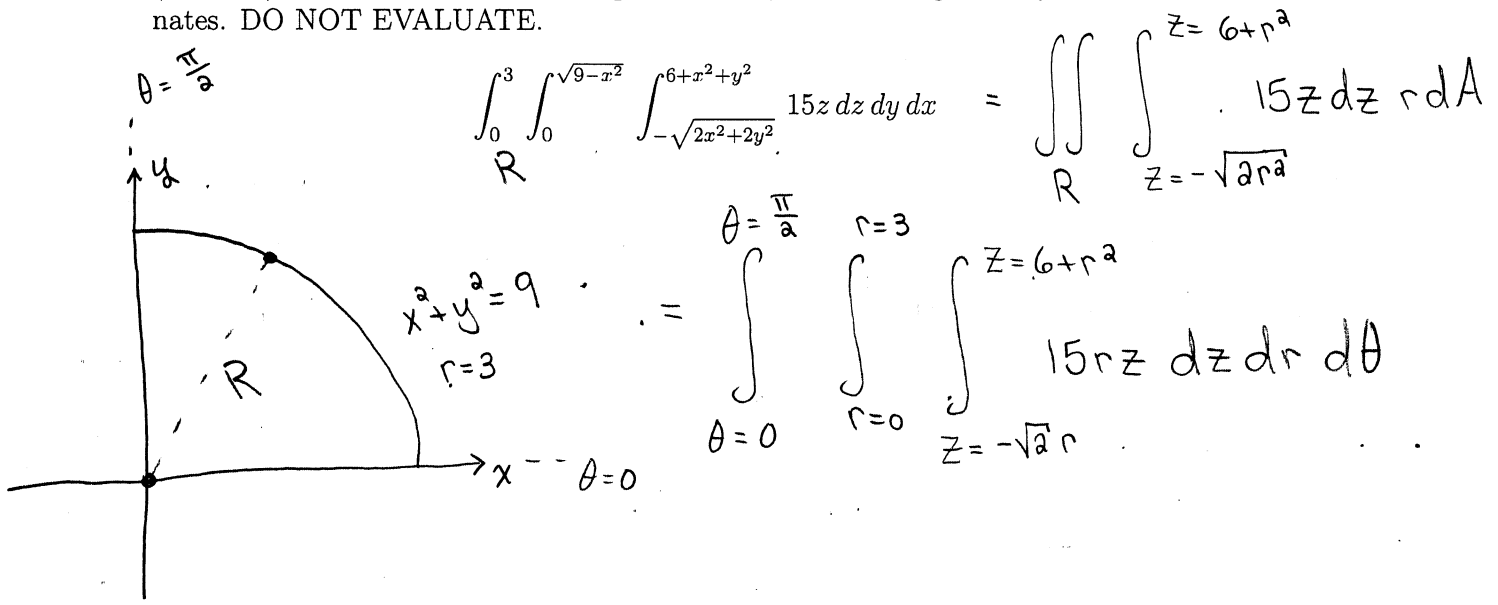 nates. DO NOT EVALUATE.
θ = π/2
∫_0^3 ∫_0^{√(9−x²)} ∫_{−√(2x²+2y²)}^{6+x²+y²} 15z dz dy dx = ∬_R ∫_{z=−√(2r²)}^{z=6+r²} 15z dz r dA
R
y
θ = π/2 r=3 z=6+r²
x²+y²=9
r=3
= ∫_{θ=0}^{θ=π/2} ∫_{r=0}^{r=3} ∫_{z=−√2 r}^{z=6+r²} 15rz dz dr dθ
R
x -- θ=0